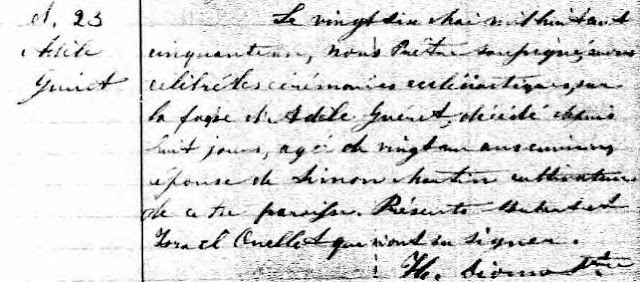 S. 23
Adèle
Guéret
Le vingt six Mai mil huit cent
cinquante un, nous Prêtre soussigné, avons
célébré les cérémonies ecclésiastiques, sur
la fosse d'Adèle Guéret, décédé depuis
huit jours, agé de vingt un ans environ
épouse de Simon Martin cultivateur
de cette paroisse. Présents et
Israel Ouellet qui n'ont su signer.
Ptre